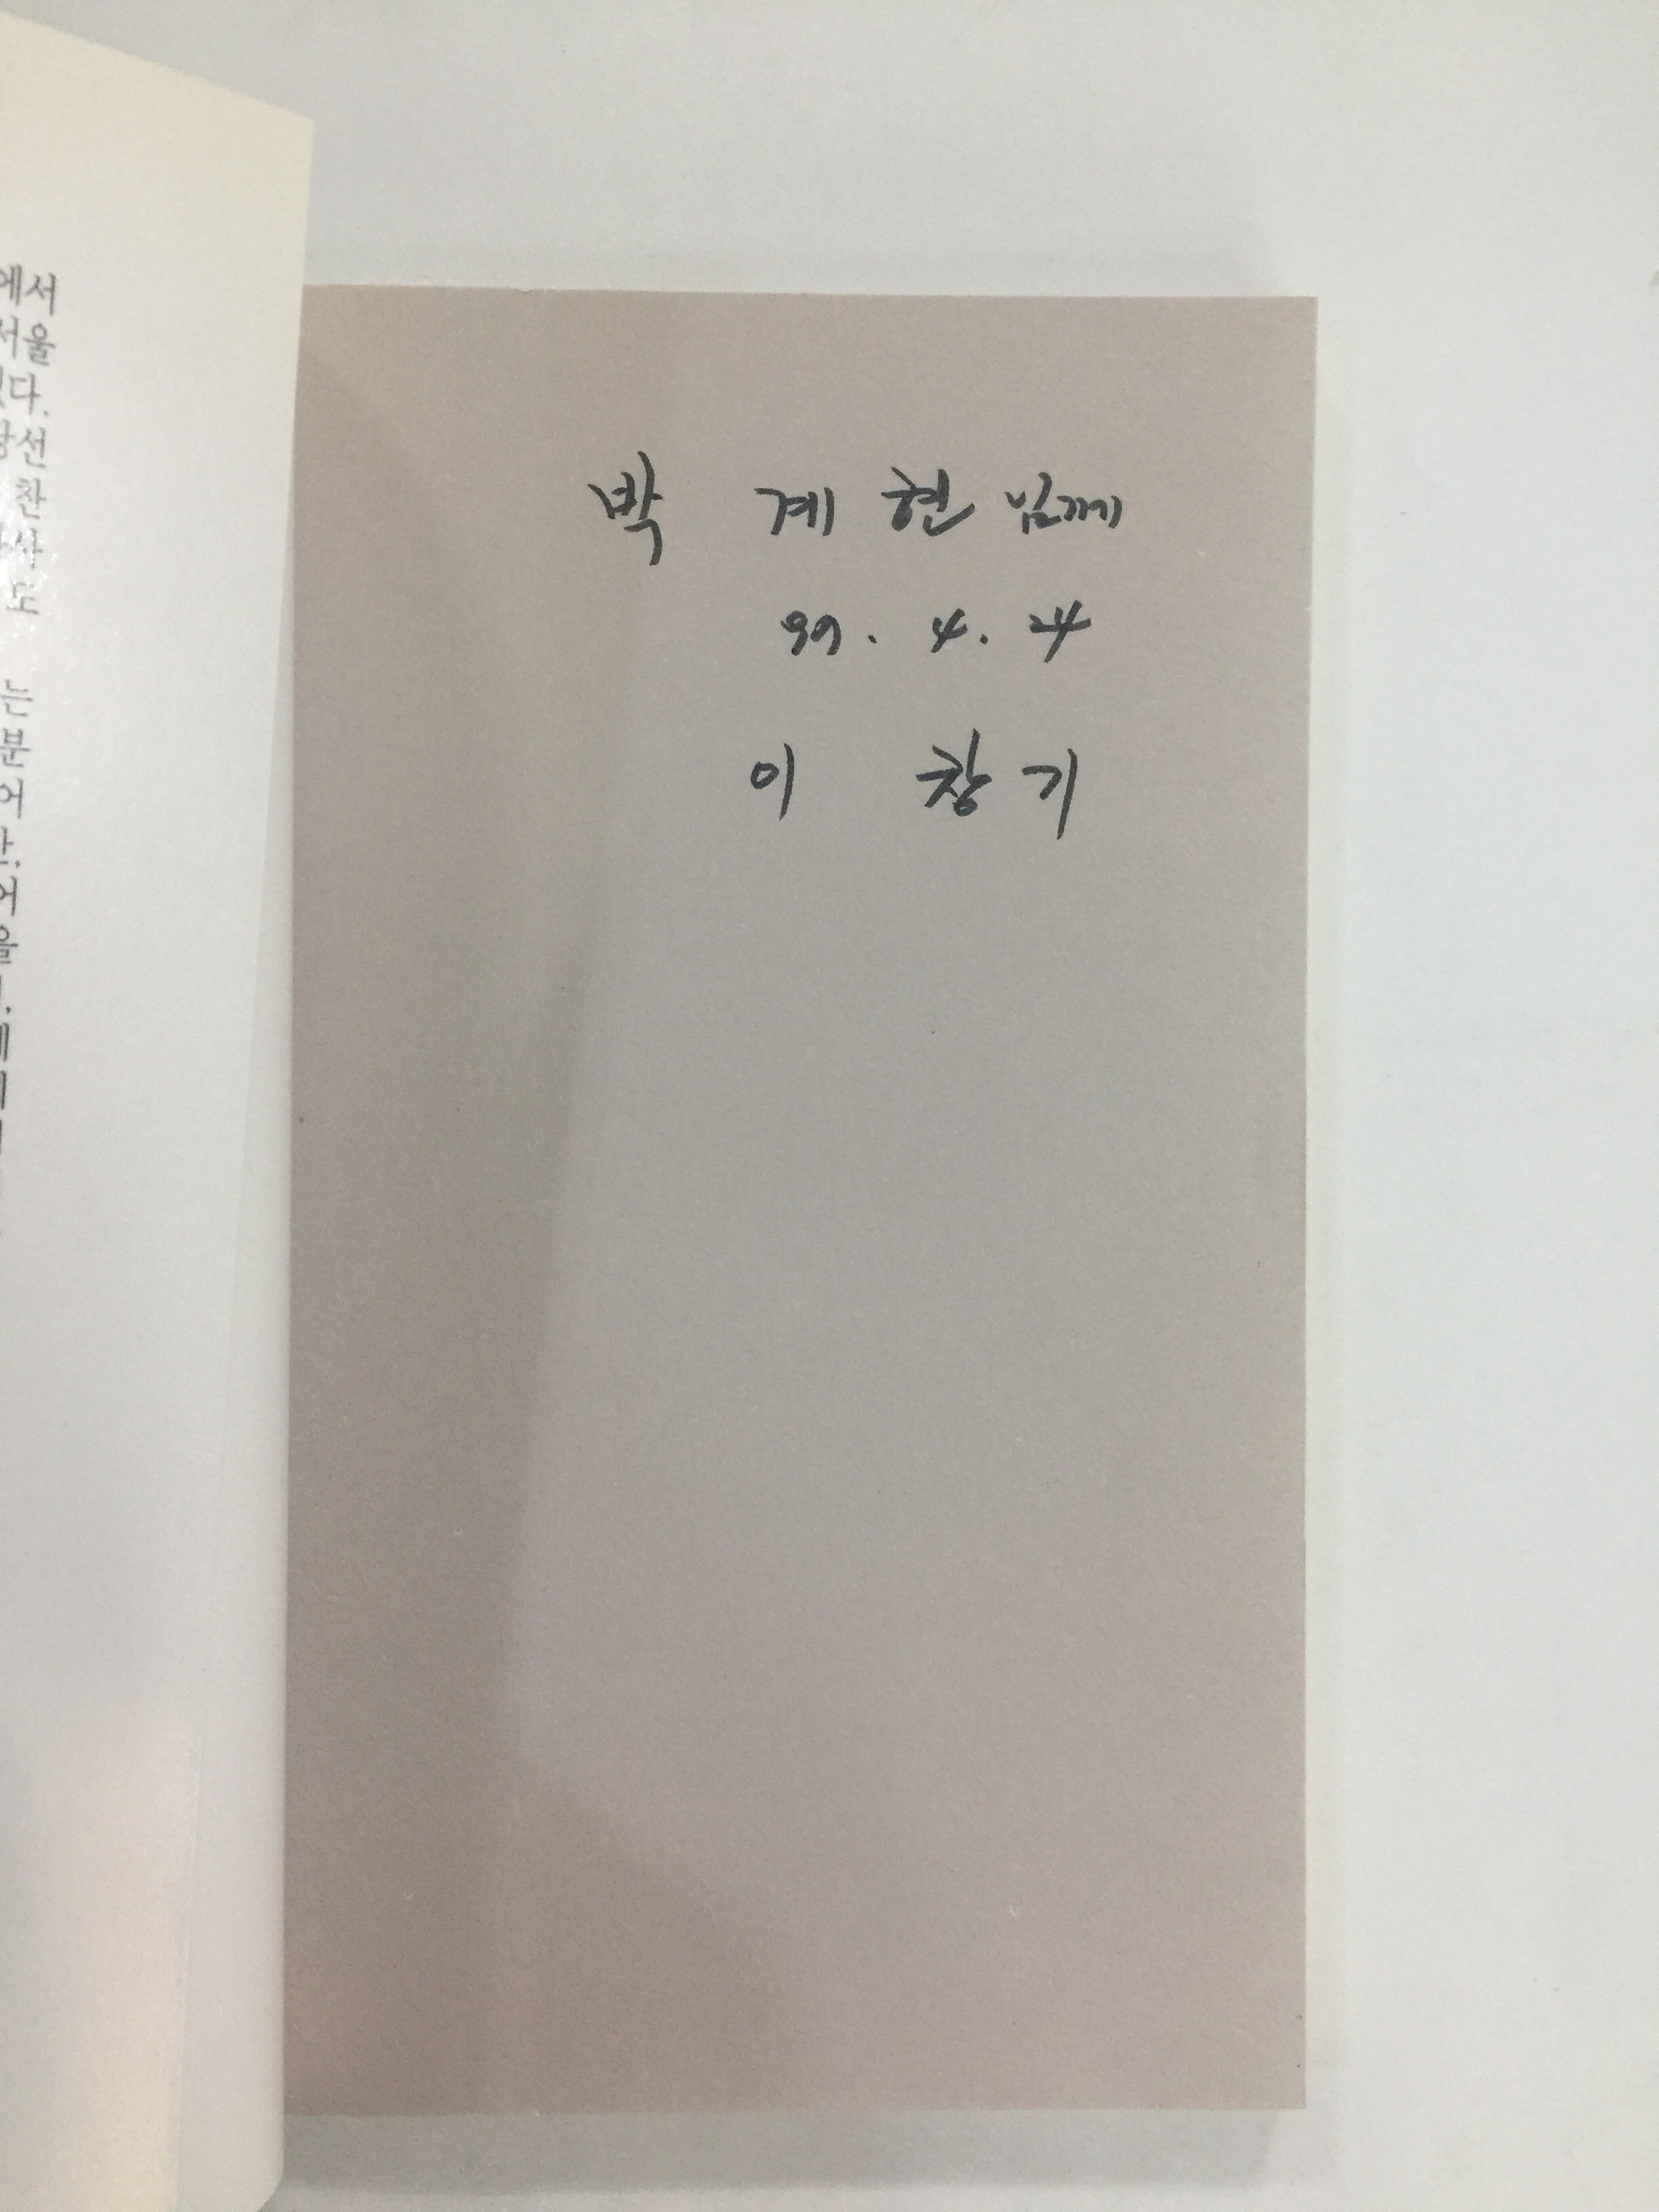 에서
서울
다.
선
찬
사
도
는
분
어
어
을
박 계 현 님께
99. 4. 24
이 창 기